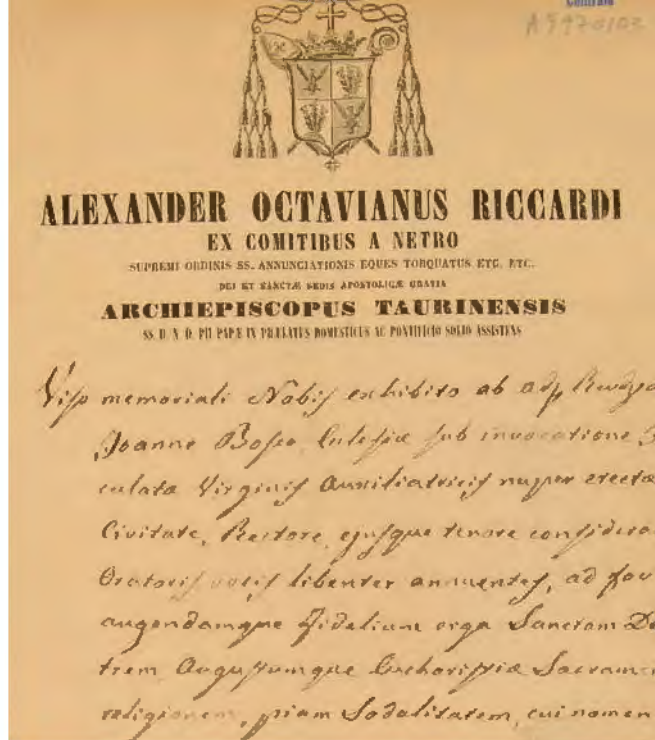 Centrale
A5970102
ALEXANDER OCTAVIANUS RICCARDI
EX COMITIBUS A NETRO
SUPREMI ORDINIS SS. ANNUNCIATIONIS EQUES TORQUATUS ETC. ETC.
DEI ET SANCTÆ SEDIS APOSTOLICÆ GRATIA
ARCHIEPISCOPUS TAURINENSIS
SS. D. N. D. PII PAPÆ IX PRÆLATUS DOMESTICUS AC PONTIFICIO SOLIO ASSISTENS
Viso memoriali Nobis exhibito ab
Joanne Bosco, Eclesiæ sub invocatione
culatæ Virginis Auxiliatricis nuper erectæ
Civitate, Rectore, ejusque tenore considera
Oratoris votis libenter annuentes, ad fov
augendamque Fidelium erga Sanctam De
trem Augustumque Eucharistiæ Sacram
religionem, piam Sodalitatem, cui nomen